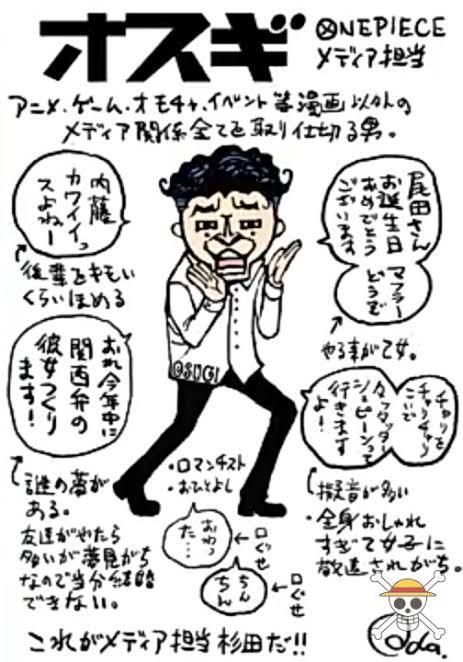 オスギ
ONEPIECE
メディア担当
アニメ、ゲーム、オモチャ、イベント等漫画以外の
メディア関係全てを取り仕切る男。
内藤
カワイイっ
スよねー
後輩をキモい
くらいほめる
尾田さん
お誕生日
おめでとう
ございます
マフラー
どうぞ
やる事が乙女。
おれ今年中に
関西弁の
彼女つくり
ます!
謎の夢が
ある。
友達がやたら
多いが夢見がち
なので当分結婚
できない。
チャリを
チャリチャリ
こいで
行きます
よ!
擬音が多い
・全身おしゃれ
すぎて女子に
敬遠されがち。
OSUGI
・ロマンチスト
・おひとよし
おわっ
た…
口ぐせ
ちん
ちん
口ぐせ
これがメディア担当杉田だ!!
Oda.